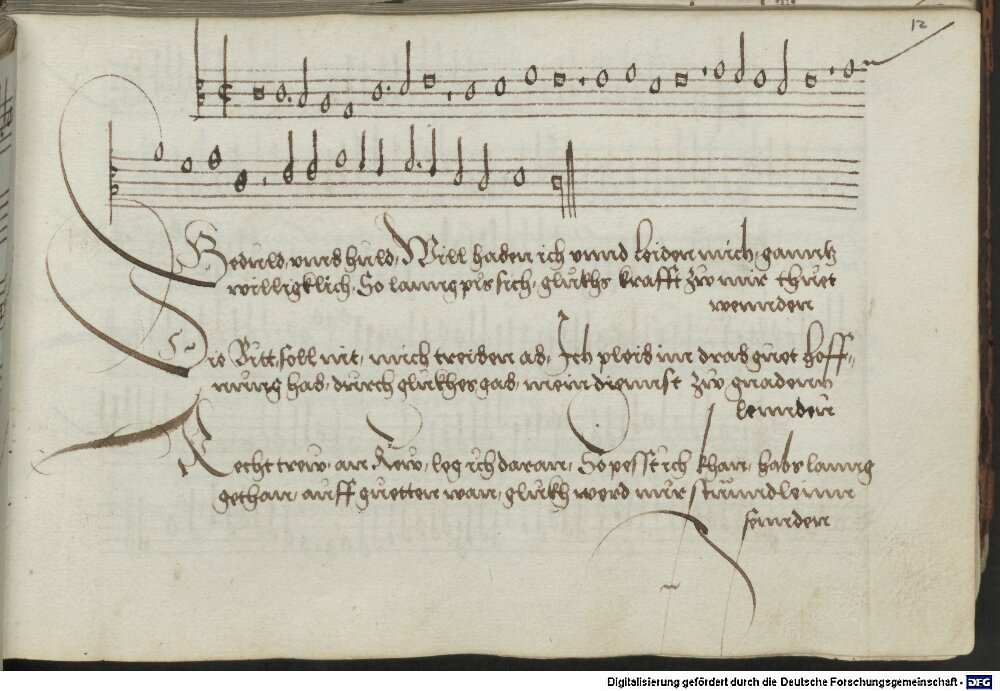 12
Geduld, vmb huld, Will haben ich vnnd leiden mich, ganntz
willigklich, So lanng pis sich, glükhs krafft zů mir thuet
wennden
Die Bitt, soll nit, mich treiben ab, Ich pleib im drab guet hoff-
nung hab, durch glükhes gab, mein diennst zů gnadenn
lennden
Recht trew, an Rew, leg ich daran, So pesst ich khan, habs lanng
gethan, auff guetten wan, glükh werd mir stündleinn
sennden
Digitalisierung gefördert durch die Deutsche Forschungsgemeinschaft - DFG